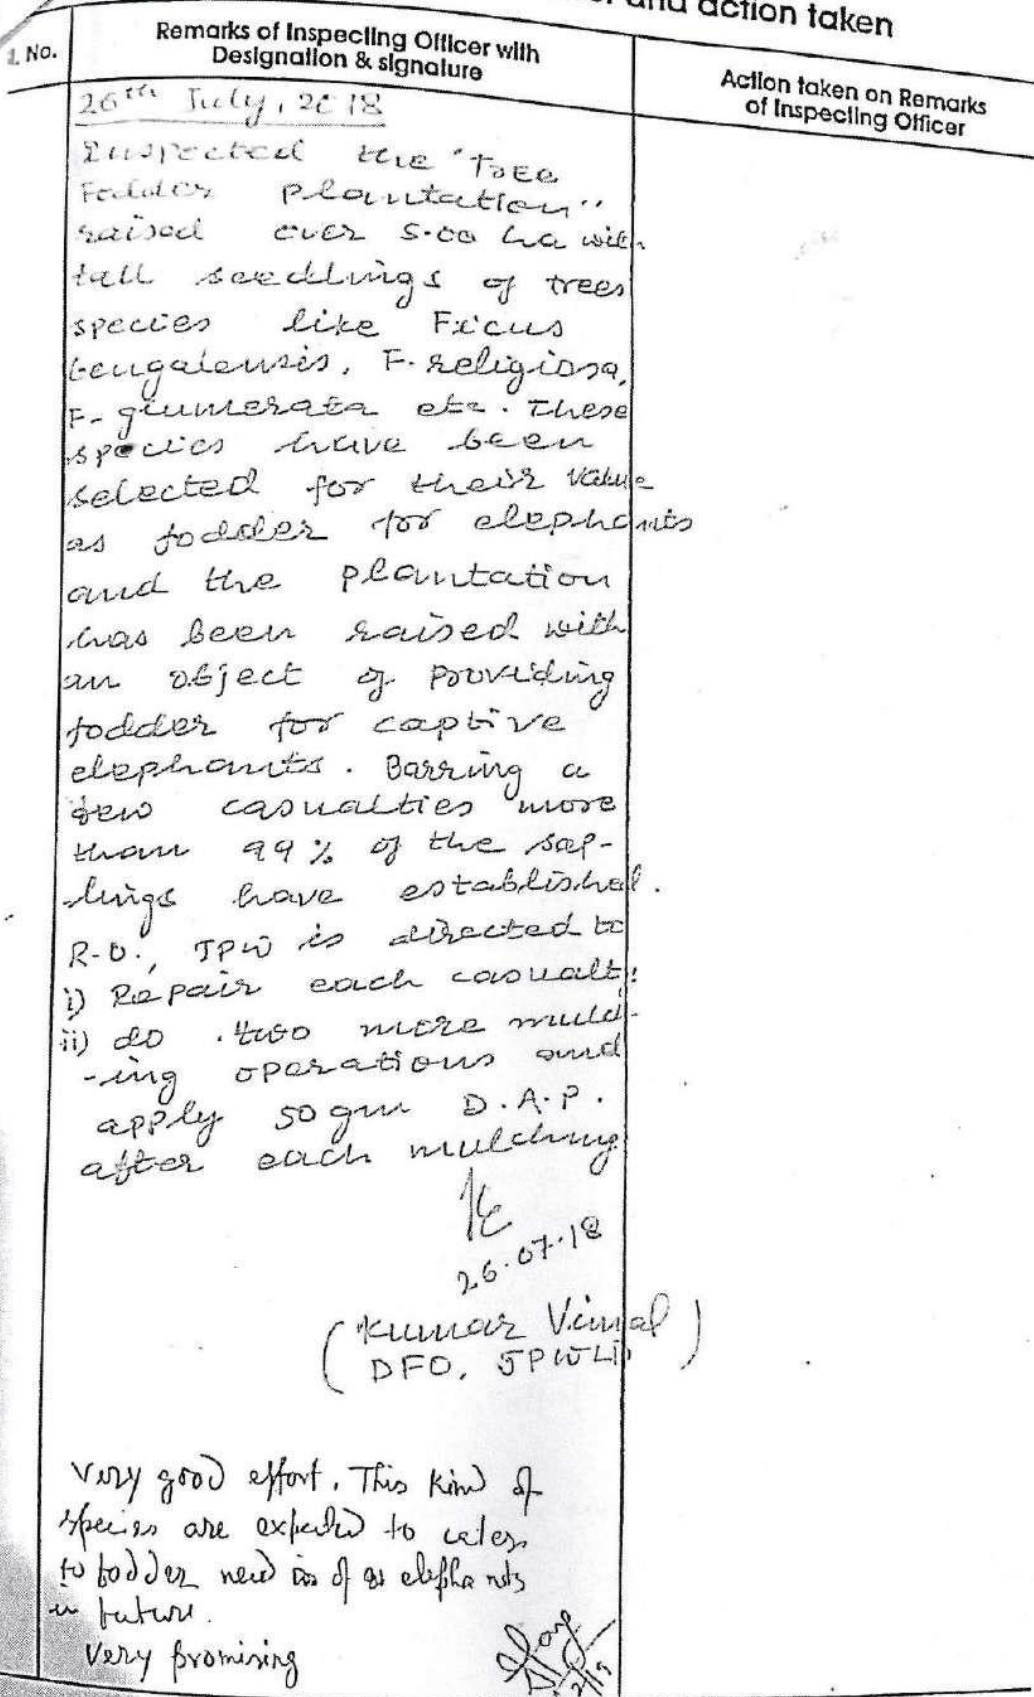 and action taken
No.
Remarks of Inspecting Officer with
Designation & signature
Action taken on Remarks
of Inspecting Officer
26th July, 2018
Inspected the "Tree
Fodder Plantation"
raised over 5.00 ha with
tall seedlings of trees
species like Ficus
bengalensis, F. religiosa,
F. glumerata etc. These
species have been
selected for their value
as fodder for elephants
and the plantation
has been raised with
an object of providing
fodder for captive
elephants. Barring a
few casualties more
than 99% of the sap-
-lings have established.
R.O., JPW is directed to
i) Repair each casualty.
ii) do two more mulch-
-ing operations and
apply 50 gm D.A.P.
after each mulching
26.07.18
(Kumar Vimal)
DFO, JPWL
Very good effort. This kind of
species are expected to cater
to fodder need of elephants
in future.
Very promising